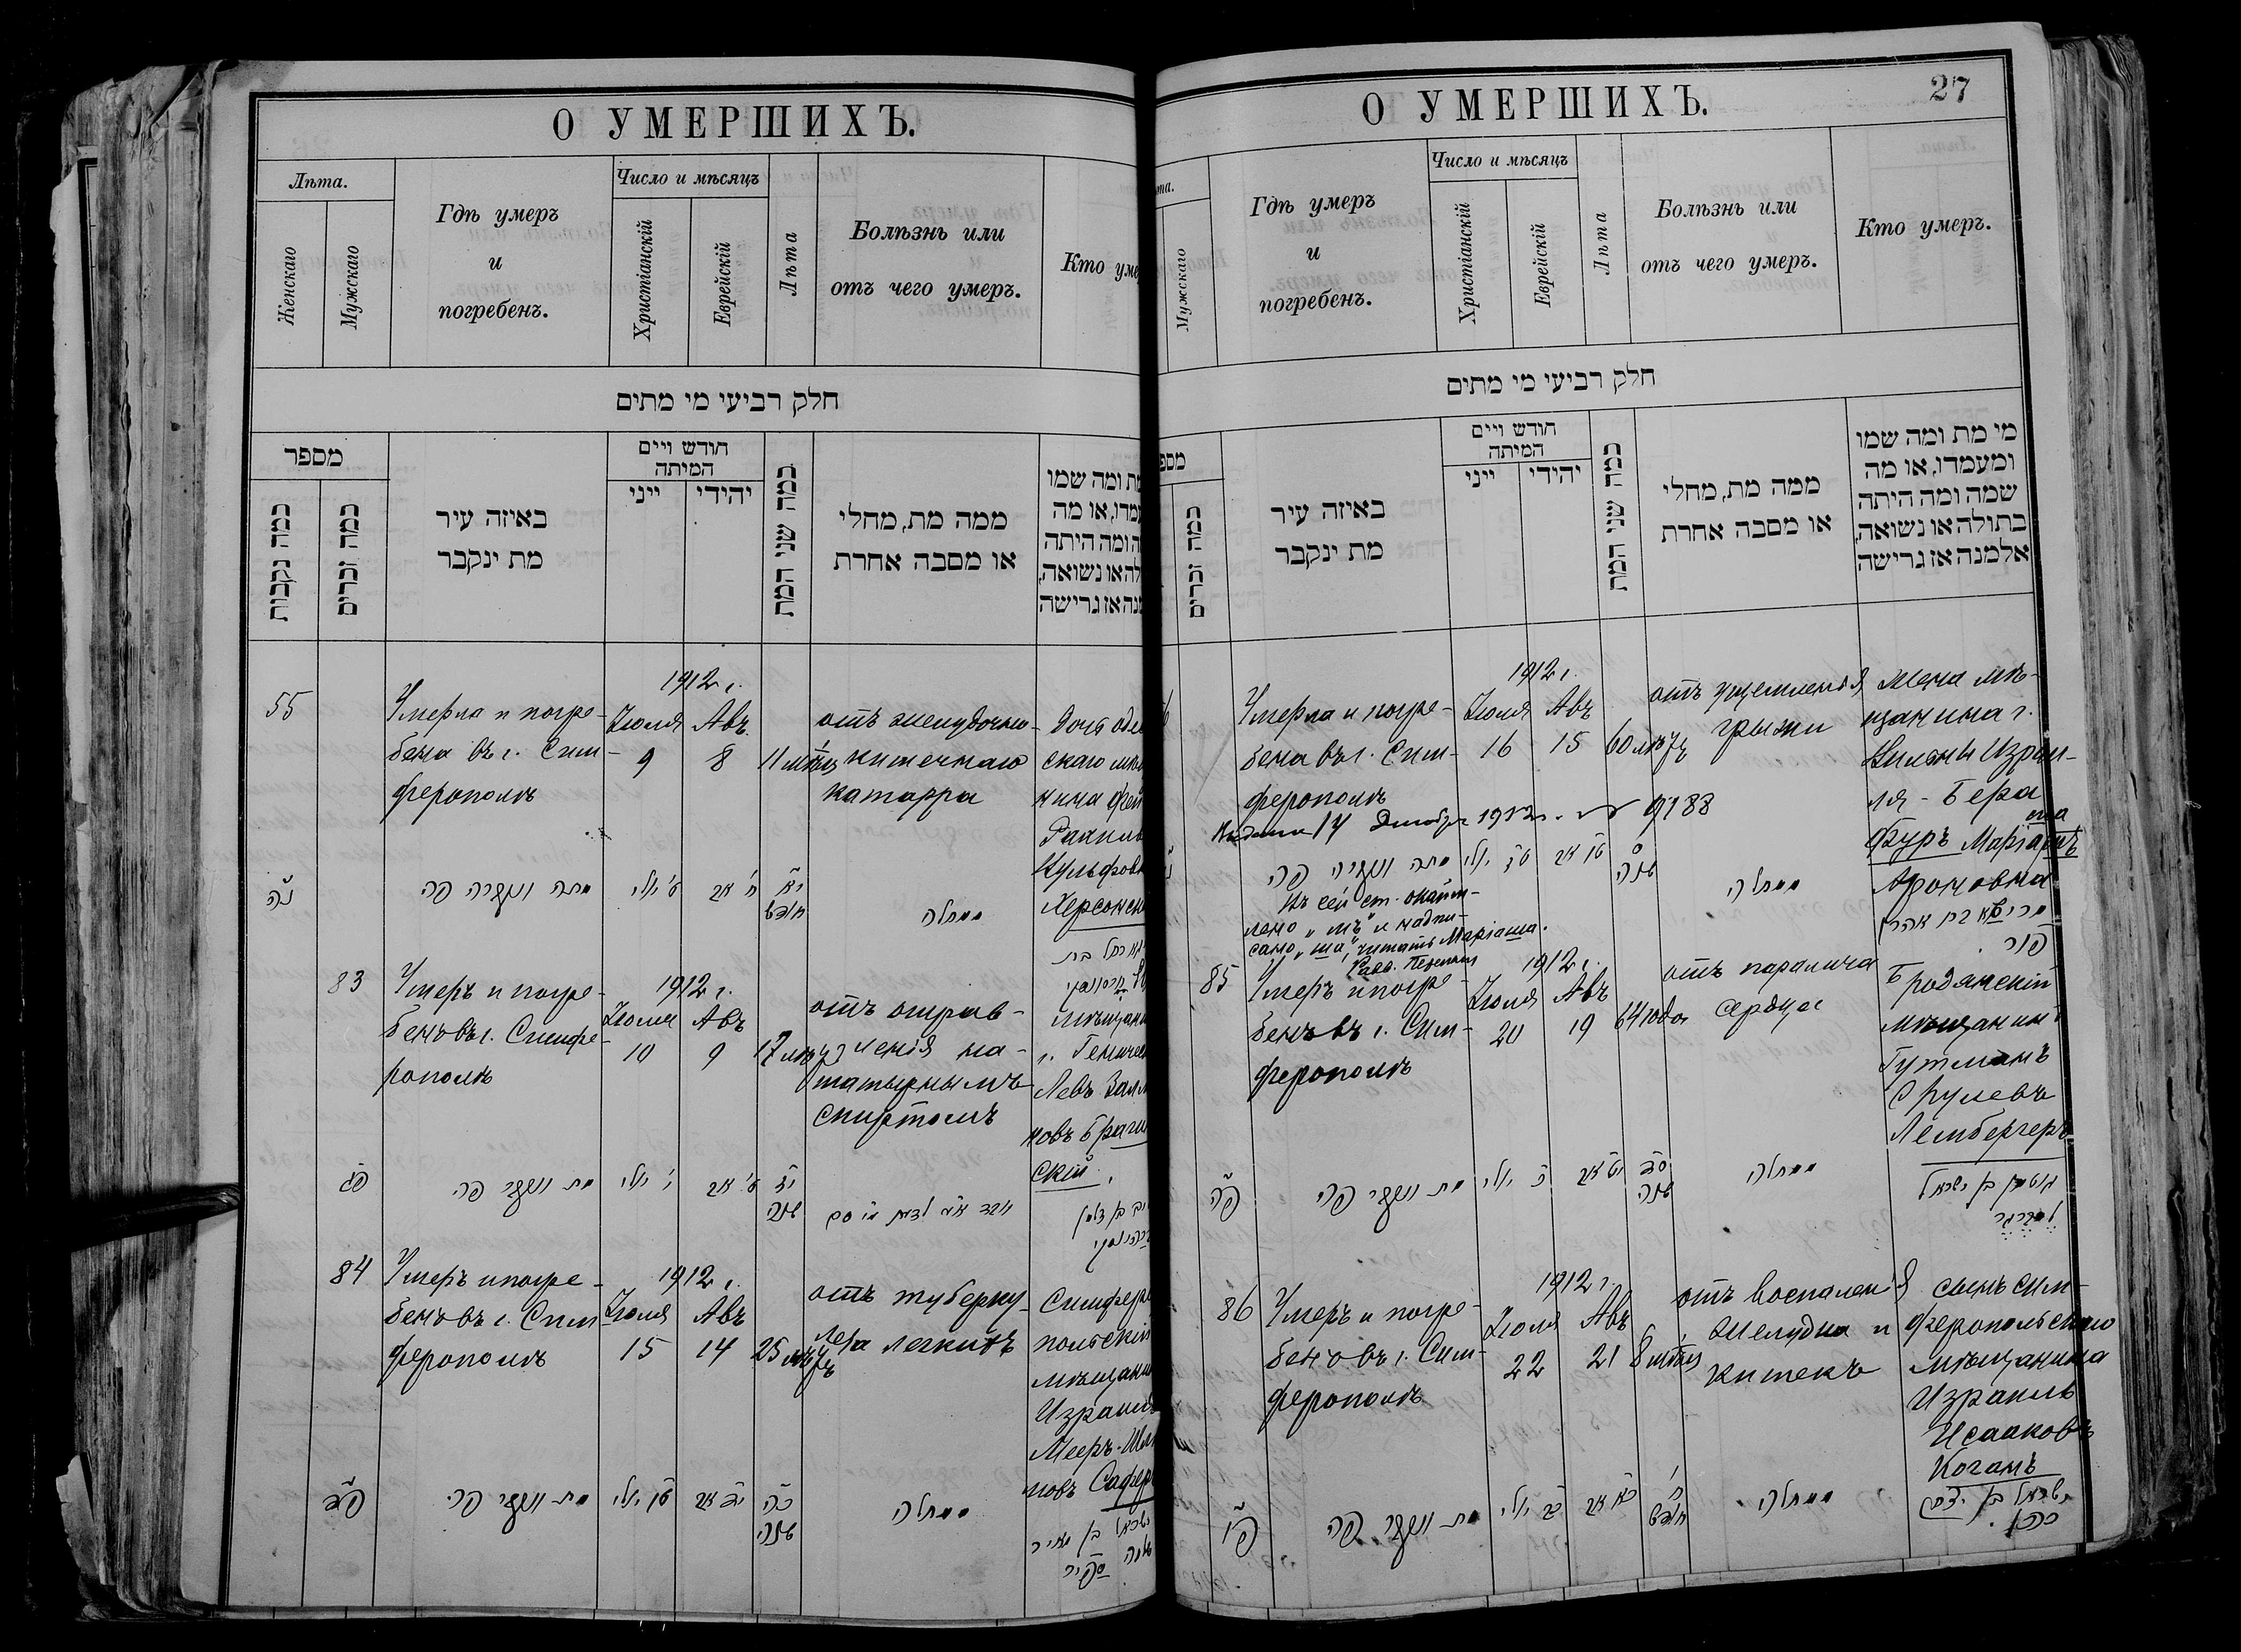 О УМЕРШИХЪ.
Лѣта.
Женскаго
Мужскаго
Гдѣ умеръ
и
погребенъ.
Число и мѣсяцъ
Христіанскій
Еврейскій
Лѣта
Болѣзнь или
отъ чего умеръ.
Кто уме
חלק רביעי מי מתים
מספר
כמה נקבות
כמה זכרים
באיזה עיר
מת ינקבר
חודש ויים
המיתה
ייני
יהודי
כמה שני המת
ממה מת, מחלי
או מסבה אחרת
ת ומה שמו
עמדו, או מה
ה ומה היתה
לה או נשואה,
נה אז גרישה
55
Умерла и погре-
бена въ г. Сим-
ферополѣ
1912 г.
Іюля Авъ
9 8
11 мѣц
отъ желудочно-
кишечнаго
катарра
Дочь оде
скаго мѣ
нина
Херсонск
נה
מתה ונקברה פה
ט' יולי
ח' אב
יא חודש
ממחלה
83
Умеръ и погре-
бенъ въ г. Симфе-
рополѣ
1912 г.
Іюля Авъ
10 9
17 лѣтъ
отъ отрав-
ленія на-
шатырнымъ
спиртомъ
мѣщани
г. Геничес
Левъ Залм
новъ Браги
скій
פג
מת ונקבר פה
י' יולי
ט' אב
יז שנה
84
Умеръ и погре-
бенъ въ г. Сим
ферополѣ
1912 г.
Іюля Авъ
15 14
25 лѣтъ
отъ туберку-
леза легкихъ
Симферо
польскій
мѣщани
Израиль
Мееръ-Шл
мовъ Сафер
פד
מת ונקבר פה
טו יולי
יד אב
כה שנה
ממחלה
ישראל בן מאיר
שלמה ספיר
27
О УМЕРШИХЪ.
та.
Мужскаго
Гдѣ умеръ
и
погребенъ.
Число и мѣсяцъ
Христіанскій
Еврейскій
Лѣта
Болѣзнь или
отъ чего умеръ.
Кто умеръ.
חלק רביעי מי מתים
מספ
כמה זכרים
באיזה עיר
מת ינקבר
חודש ויים
המיתה
ייני
יהידי
כמה שני המת
ממה מת, מחלי
או מסבה אחרת
מי מת ומה שמו
ומעמדו, או מה
שמה ומה היתה
בתולה או נשואה,
אלמנה אז גרישה
6
Умерла и погре-
бена въ г. Сим-
ферополѣ
1912 г.
Іюля Авъ
16 15
60 лѣтъ
отъ ущемленія
грыжи
жена мѣ-
щанина г.
Вильны Израи-
ля-Бера
ша
Фуръ Маріамъ
Ароновна
14 Декабря 1912 г. № 9788
מתה ונקברה פה
טז יולי
טו אב
ס שנה
ממחלה
Въ сей ст. окайм-
лено „мъ" и надпи-
сано „ша", читать Маріаша.
Равв.
85
Умеръ и погре-
бенъ въ г. Сим-
ферополѣ
1912 г.
Іюля Авъ
20 19
64 года
отъ паралича
сердца
Бродянскій
мѣщанинъ
Гутманъ
Срулевъ
Лембергеръ
פה
מת ונקבר פה
כ יולי
יט אב
סד שנה
ממחלה
גוטמן בן ישראל
למברגר
86
Умеръ и погре-
бенъ въ г. Сим-
ферополѣ
1912 г.
Іюля Авъ
22 21
8 мѣсяц
отъ воспаленія
желудка и
кишекъ
сынъ сим-
феропольскаго
мѣщанина
Израиль
Исааковъ
Коганъ
פו
מת ונקבר פה
כב יולי
כא אב
ח' חודש
ממחלה
ישראל בן יצחק
כהן.